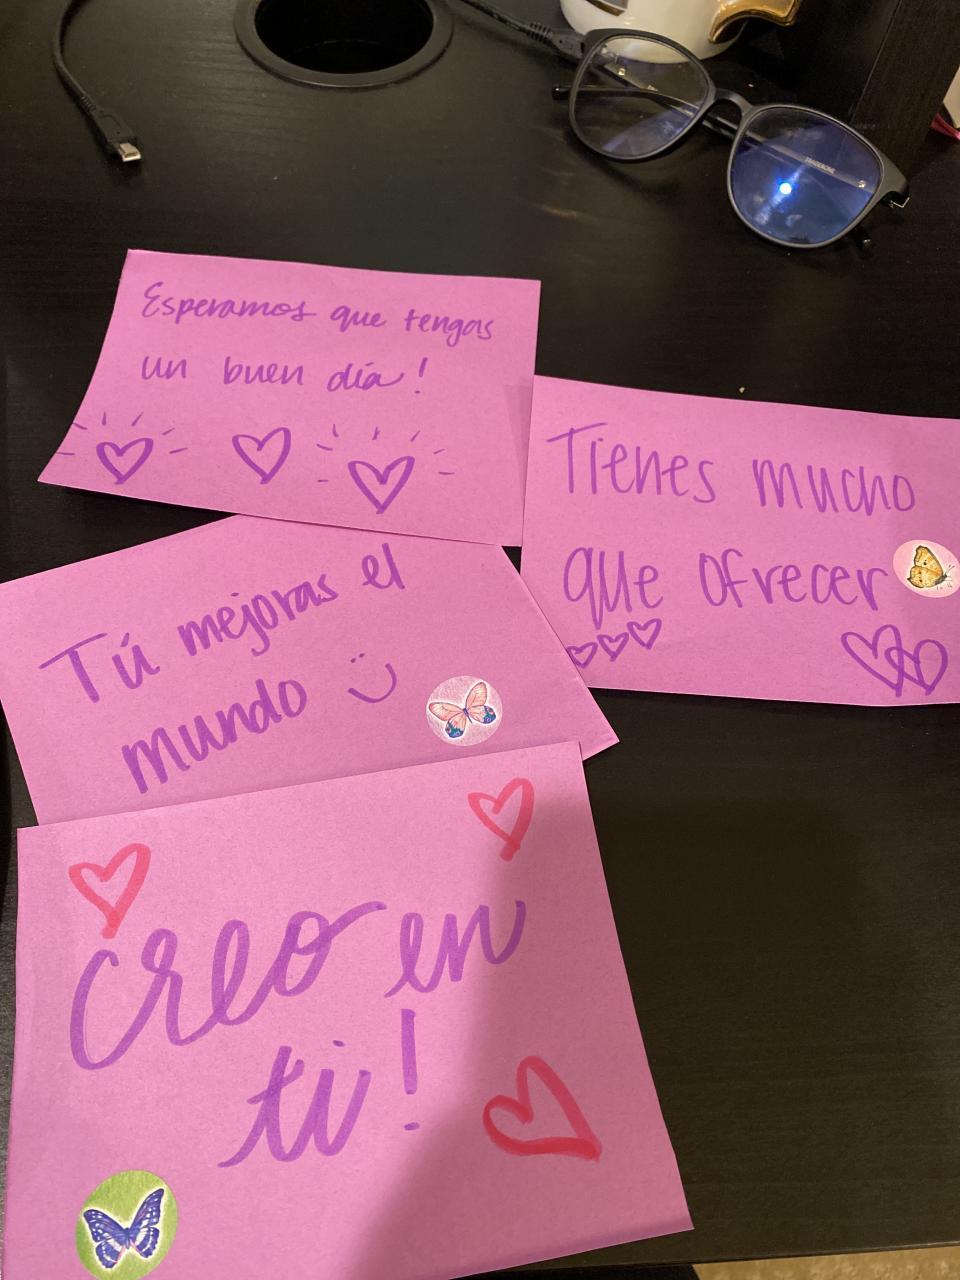 Esperamos que tengas
un buen día!
Tienes mucho
que ofrecer
Tú mejoras el
mundo
Creo en
ti!